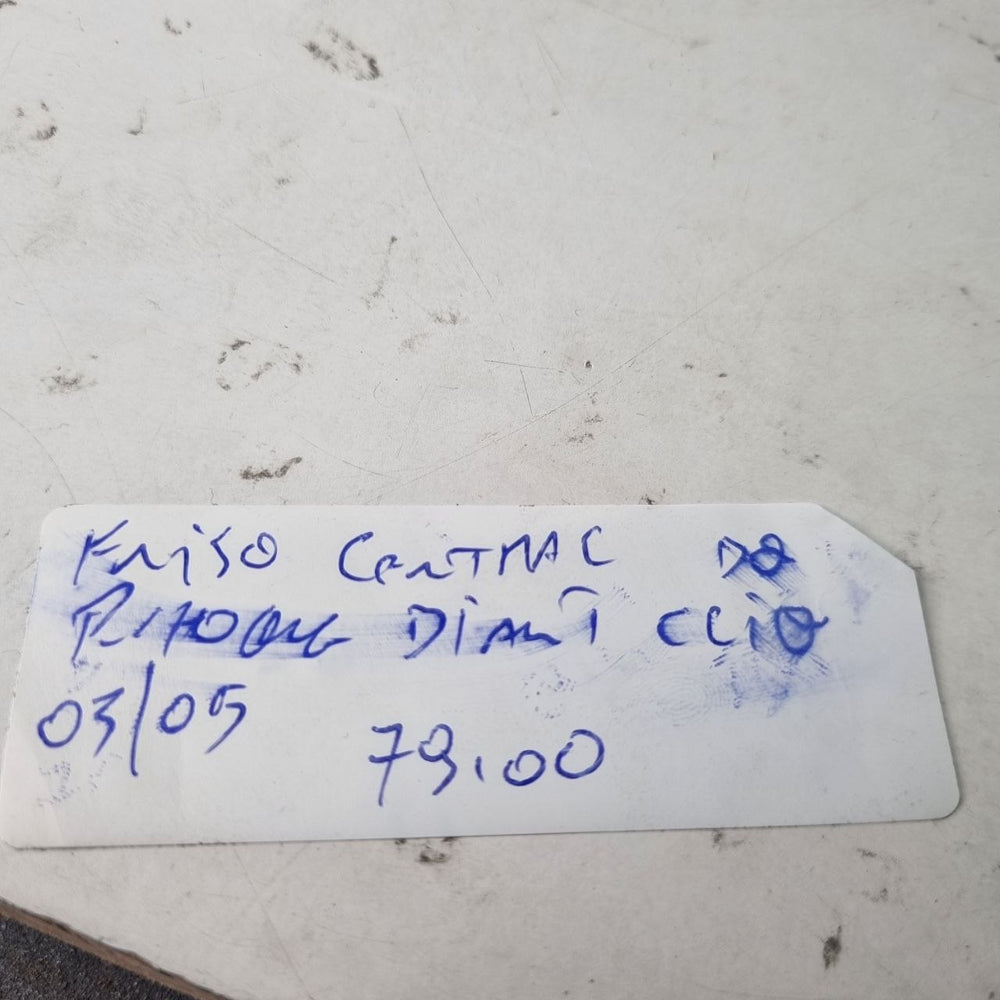 FRISO CENTRAL DO
PCHOQUE DIANT CLIO
03/05
79.00